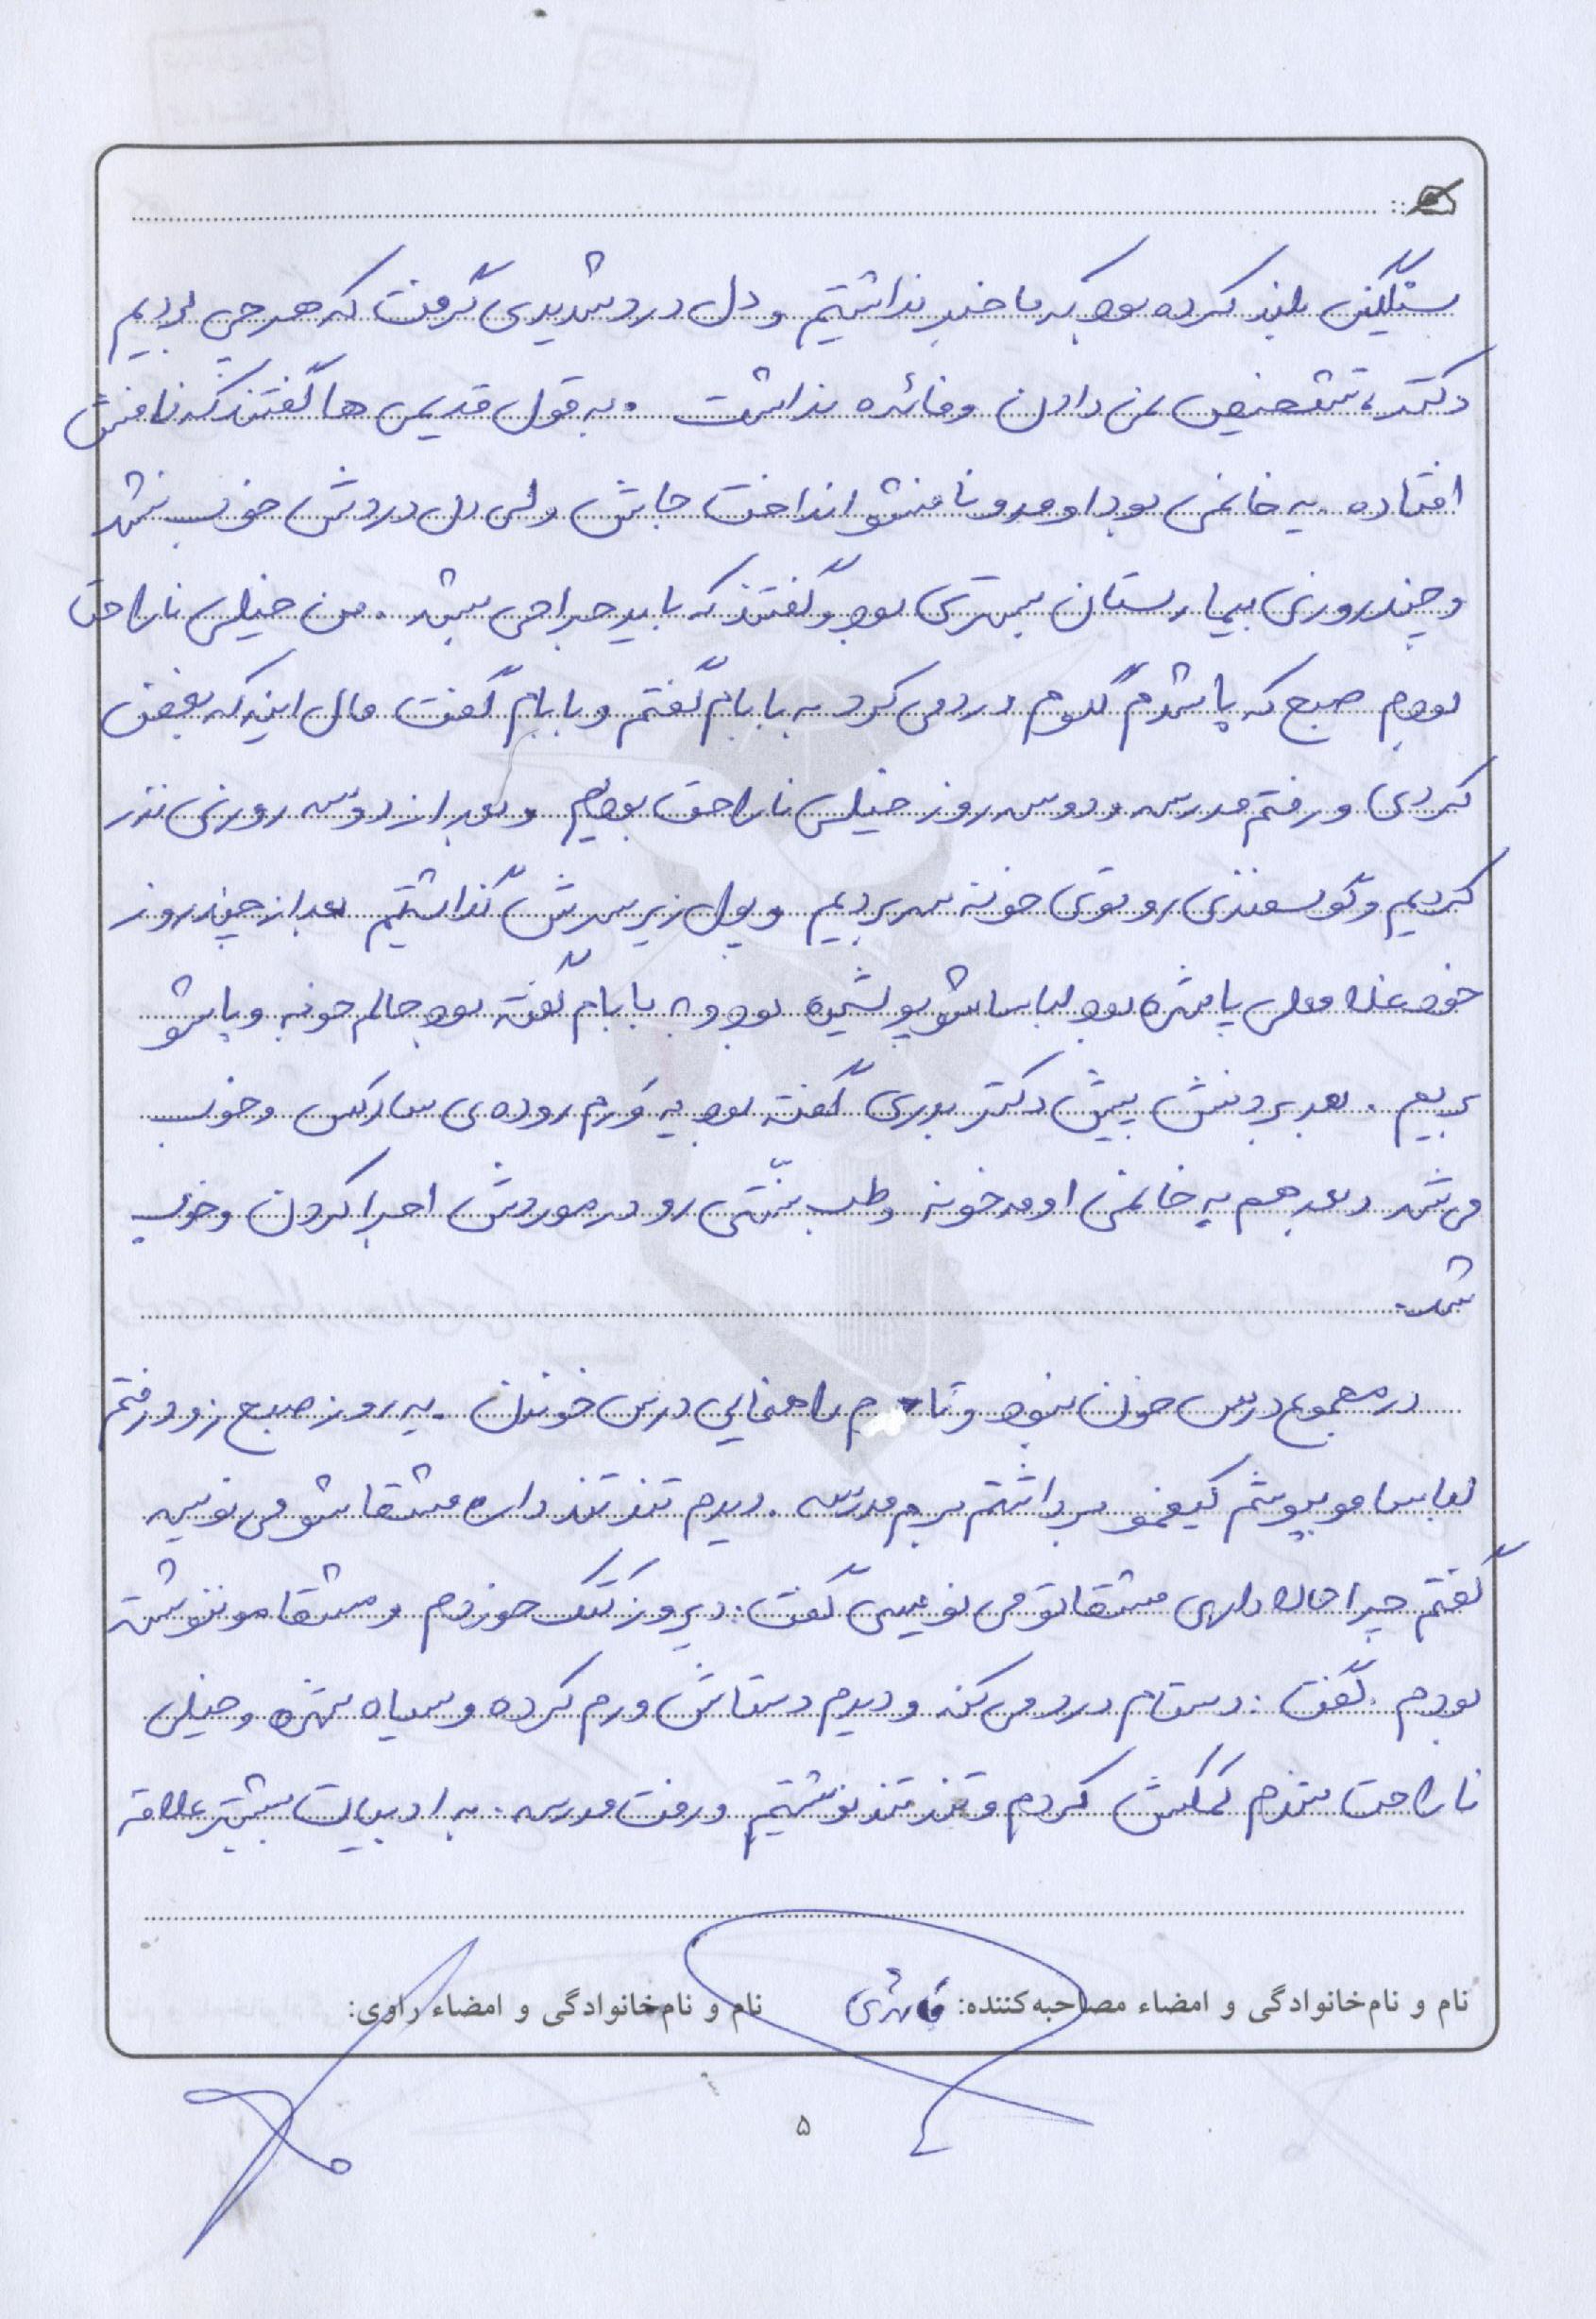 سنگینی بلند کرده بود که ما خبر نداشتیم و دل درد شدیدی گرفت که هر چی بردیم
دکتر، تشخیص نمی دادن و فائده نداشت . به قول قدیمی ها گفتند که نافش
افتاده . یه خانمی بود اومد و نافشو انداخت جاش ولی دل دردش خوب نشد
و چند روزی بیمارستان بستری بود و گفتند که باید جراحی بشه . من خیلی ناراحت
بودم صبح که پا شدم گلوم درد می کرد به بابام گفتم و بابام گفت مال اینه که بغض
کردی و رفتم مدرسه و دو سه روز خیلی ناراحت بودیم و بعد از دو سه روزی نذر
کردیم و گوسفندی رو توی خونه سر بردیم و پول زیر سرش گذاشتیم بعد از چند روز
خود غلامعلی پا شده بود لباساشو پوشیده بود و به بابام گفته بود حالم خوبه و پاشو
بریم . بعد بردنش پیش دکتر بدری گفته بود یه ورم روده ی سادکس و خوب
می شد و بعد هم یه خانمی اومد خونه و طب سنتی رو در موردش اجرا کردن و خوب
شد.
در مجموع درس خون نبود و تا دوم راهنمایی درس خوندن . یه روز صبح زود رفتم
لباسامو بپوشم کیفمو برداشتم برم مدرسه . دیدم تند تند داره مشقاشو می نویسه
گفتم چرا حالا داری مشقاتو می نویسی گفت: دیروز کتک خوردم و مشقامو ننوشته
بودم . گفت : دستام درد می کنه و دیدم دستاش ورم کرده و سیاه شده و خیلی
ناراحت شدم کمکش کردم و تند تند نوشتیم و رفت مدرسه . به ادبیات بیشتر علاقه
نام و نام‌خانوادگی و امضاء مصاحبه‌کننده:
نام و نام‌خانوادگی و امضاء راوی:
۵